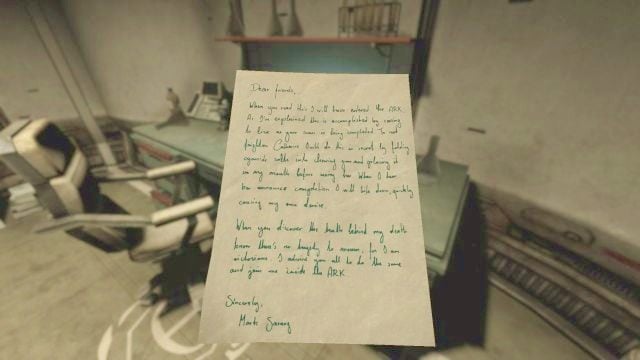 Dear friends,
When you read this I will have entered the ARK.
As I've explained this is accomplished by ceasing
to live as your scan is being completed. To not
frighten Catherine I will do this in secret by folding
cyanide salts into chewing gum and placing it
in my mouth before using her. When I hear
her announce completion I will bite down, quickly
causing my own demise.
When you discover the truth behind my death
know there's no tragedy to mourn, for I am
victorious. I advise you all to do the same
and join me inside the ARK
Sincerely,
Mark Sarang